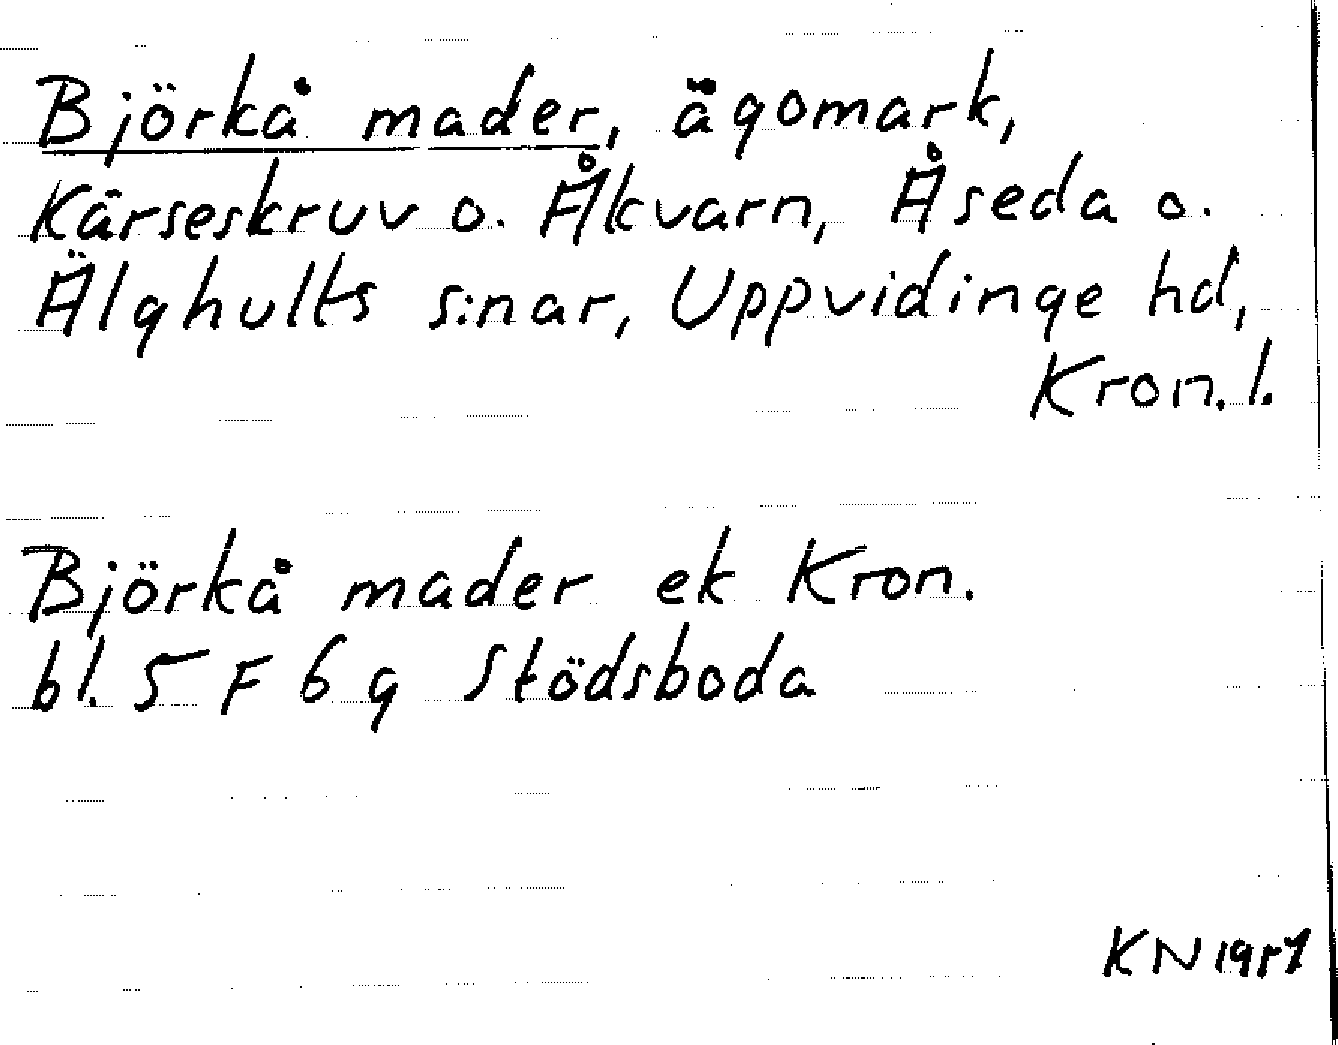 Björkå mader, ägomark,
Kärseskruv o. Åkvarn, Åseda o.
Älghults s:nar, Uppvidinge hd,
Kron. l.
Björkå mader ek Kron.
bl. 5 F 6 g Stödsboda
KN